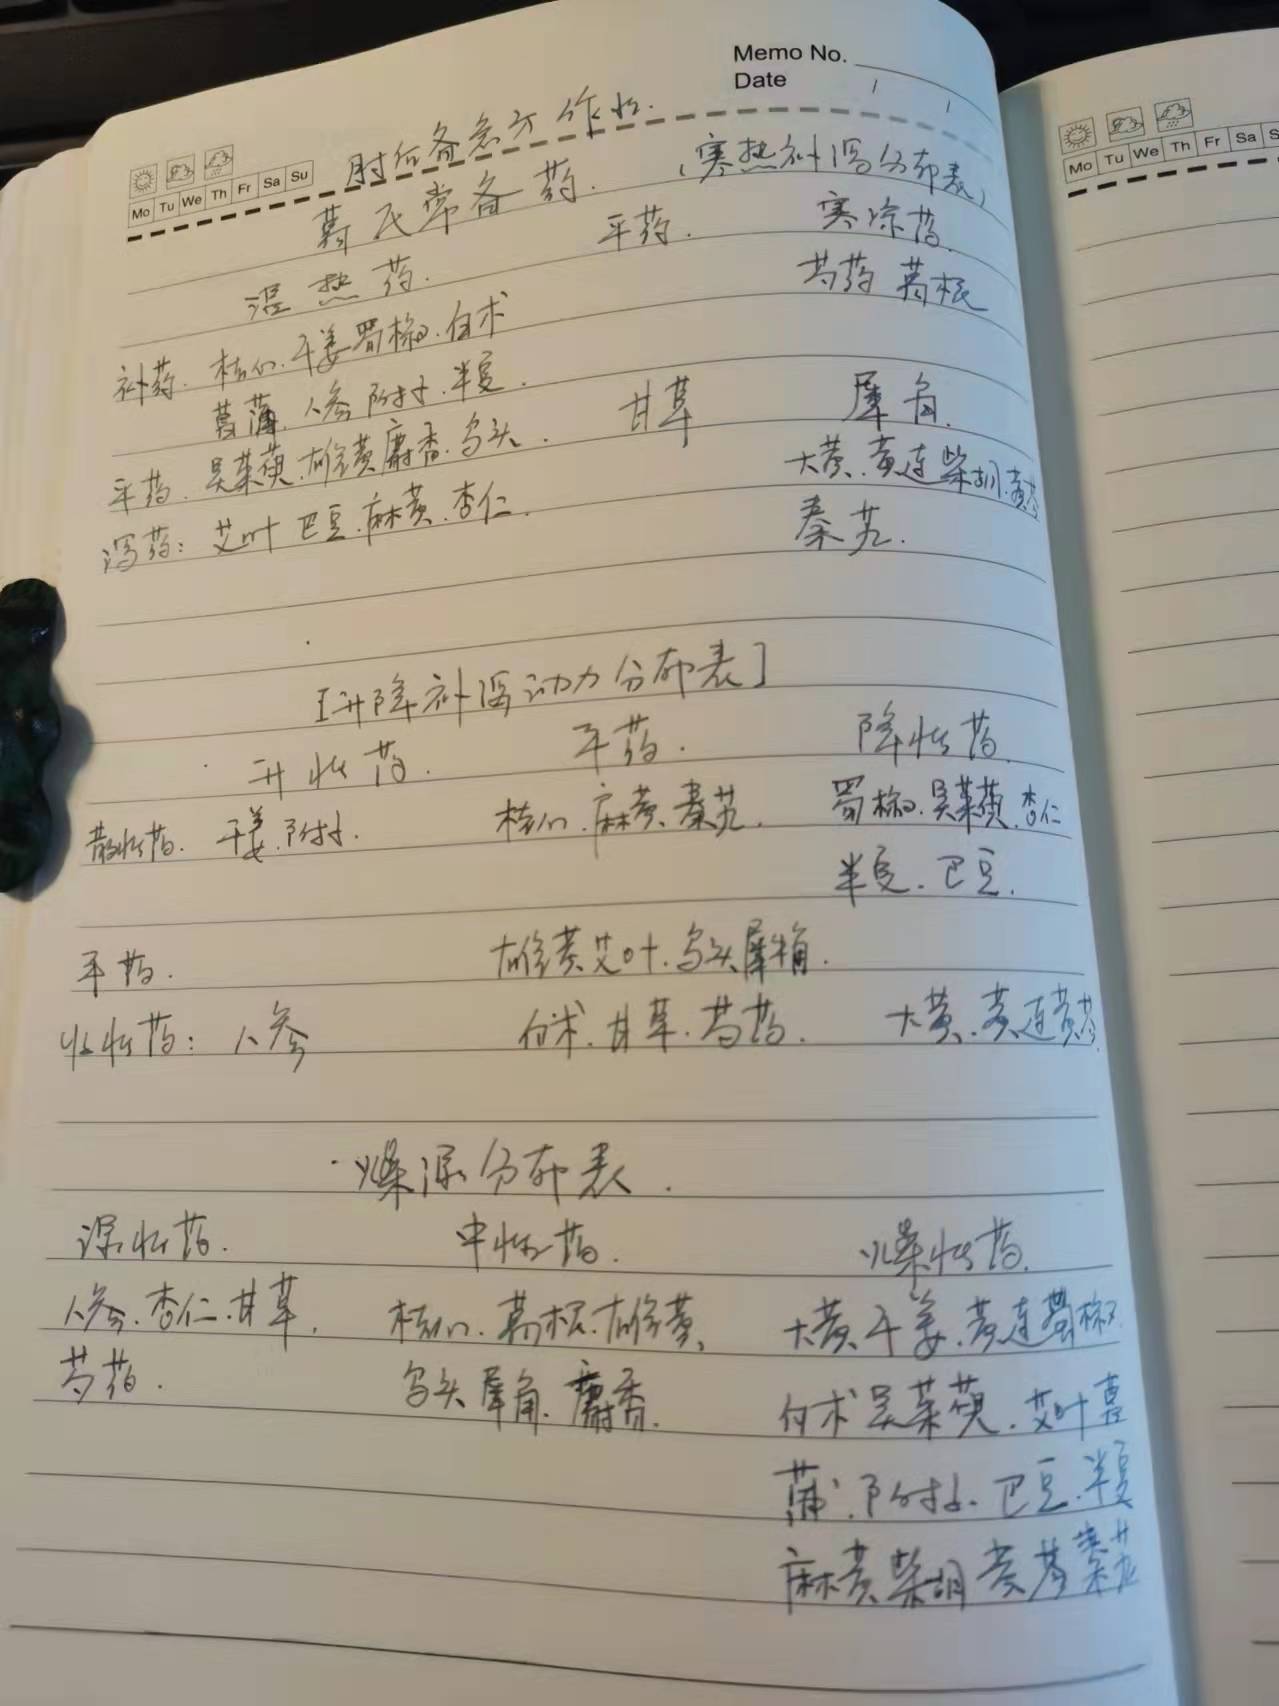 Memo No.
Date / /
Mo Tu We Th Fr Sa Su
肘后备急方作业.
葛氏常备药. (寒热补泻分布表)
温热药. 平药. 寒凉药.
芍药 葛根
补药. 桂心. 干姜 蜀椒. 白术
菖蒲. 人参 附子. 半夏. 甘草 犀角.
平药. 吴茱萸. 雄黄 麝香. 乌头. 大黄. 黄连 柴胡. 黄芩
泻药: 艾叶 巴豆. 麻黄. 杏仁. 秦艽.
[升降补泻动力分布表]
升性药. 平药. 降性药.
散性药. 干姜. 附子. 桂心. 麻黄. 秦艽. 蜀椒. 吴茱萸. 杏仁
半夏. 巴豆.
平药. 雄黄 艾叶. 乌头 犀角.
收性药: 人参 白术. 甘草. 芍药. 大黄. 黄连 黄芩.
燥湿分布表.
湿性药. 中性药. 燥性药.
人参. 杏仁. 甘草. 桂心. 葛根. 雄黄. 大黄. 干姜. 黄连 蜀椒.
芍药. 乌头 犀角. 麝香. 白术 吴茱萸. 艾叶 菖
蒲. 附子. 巴豆. 半夏
麻黄 柴胡 黄芩 秦艽
Mo Tu We Th Fr Sa